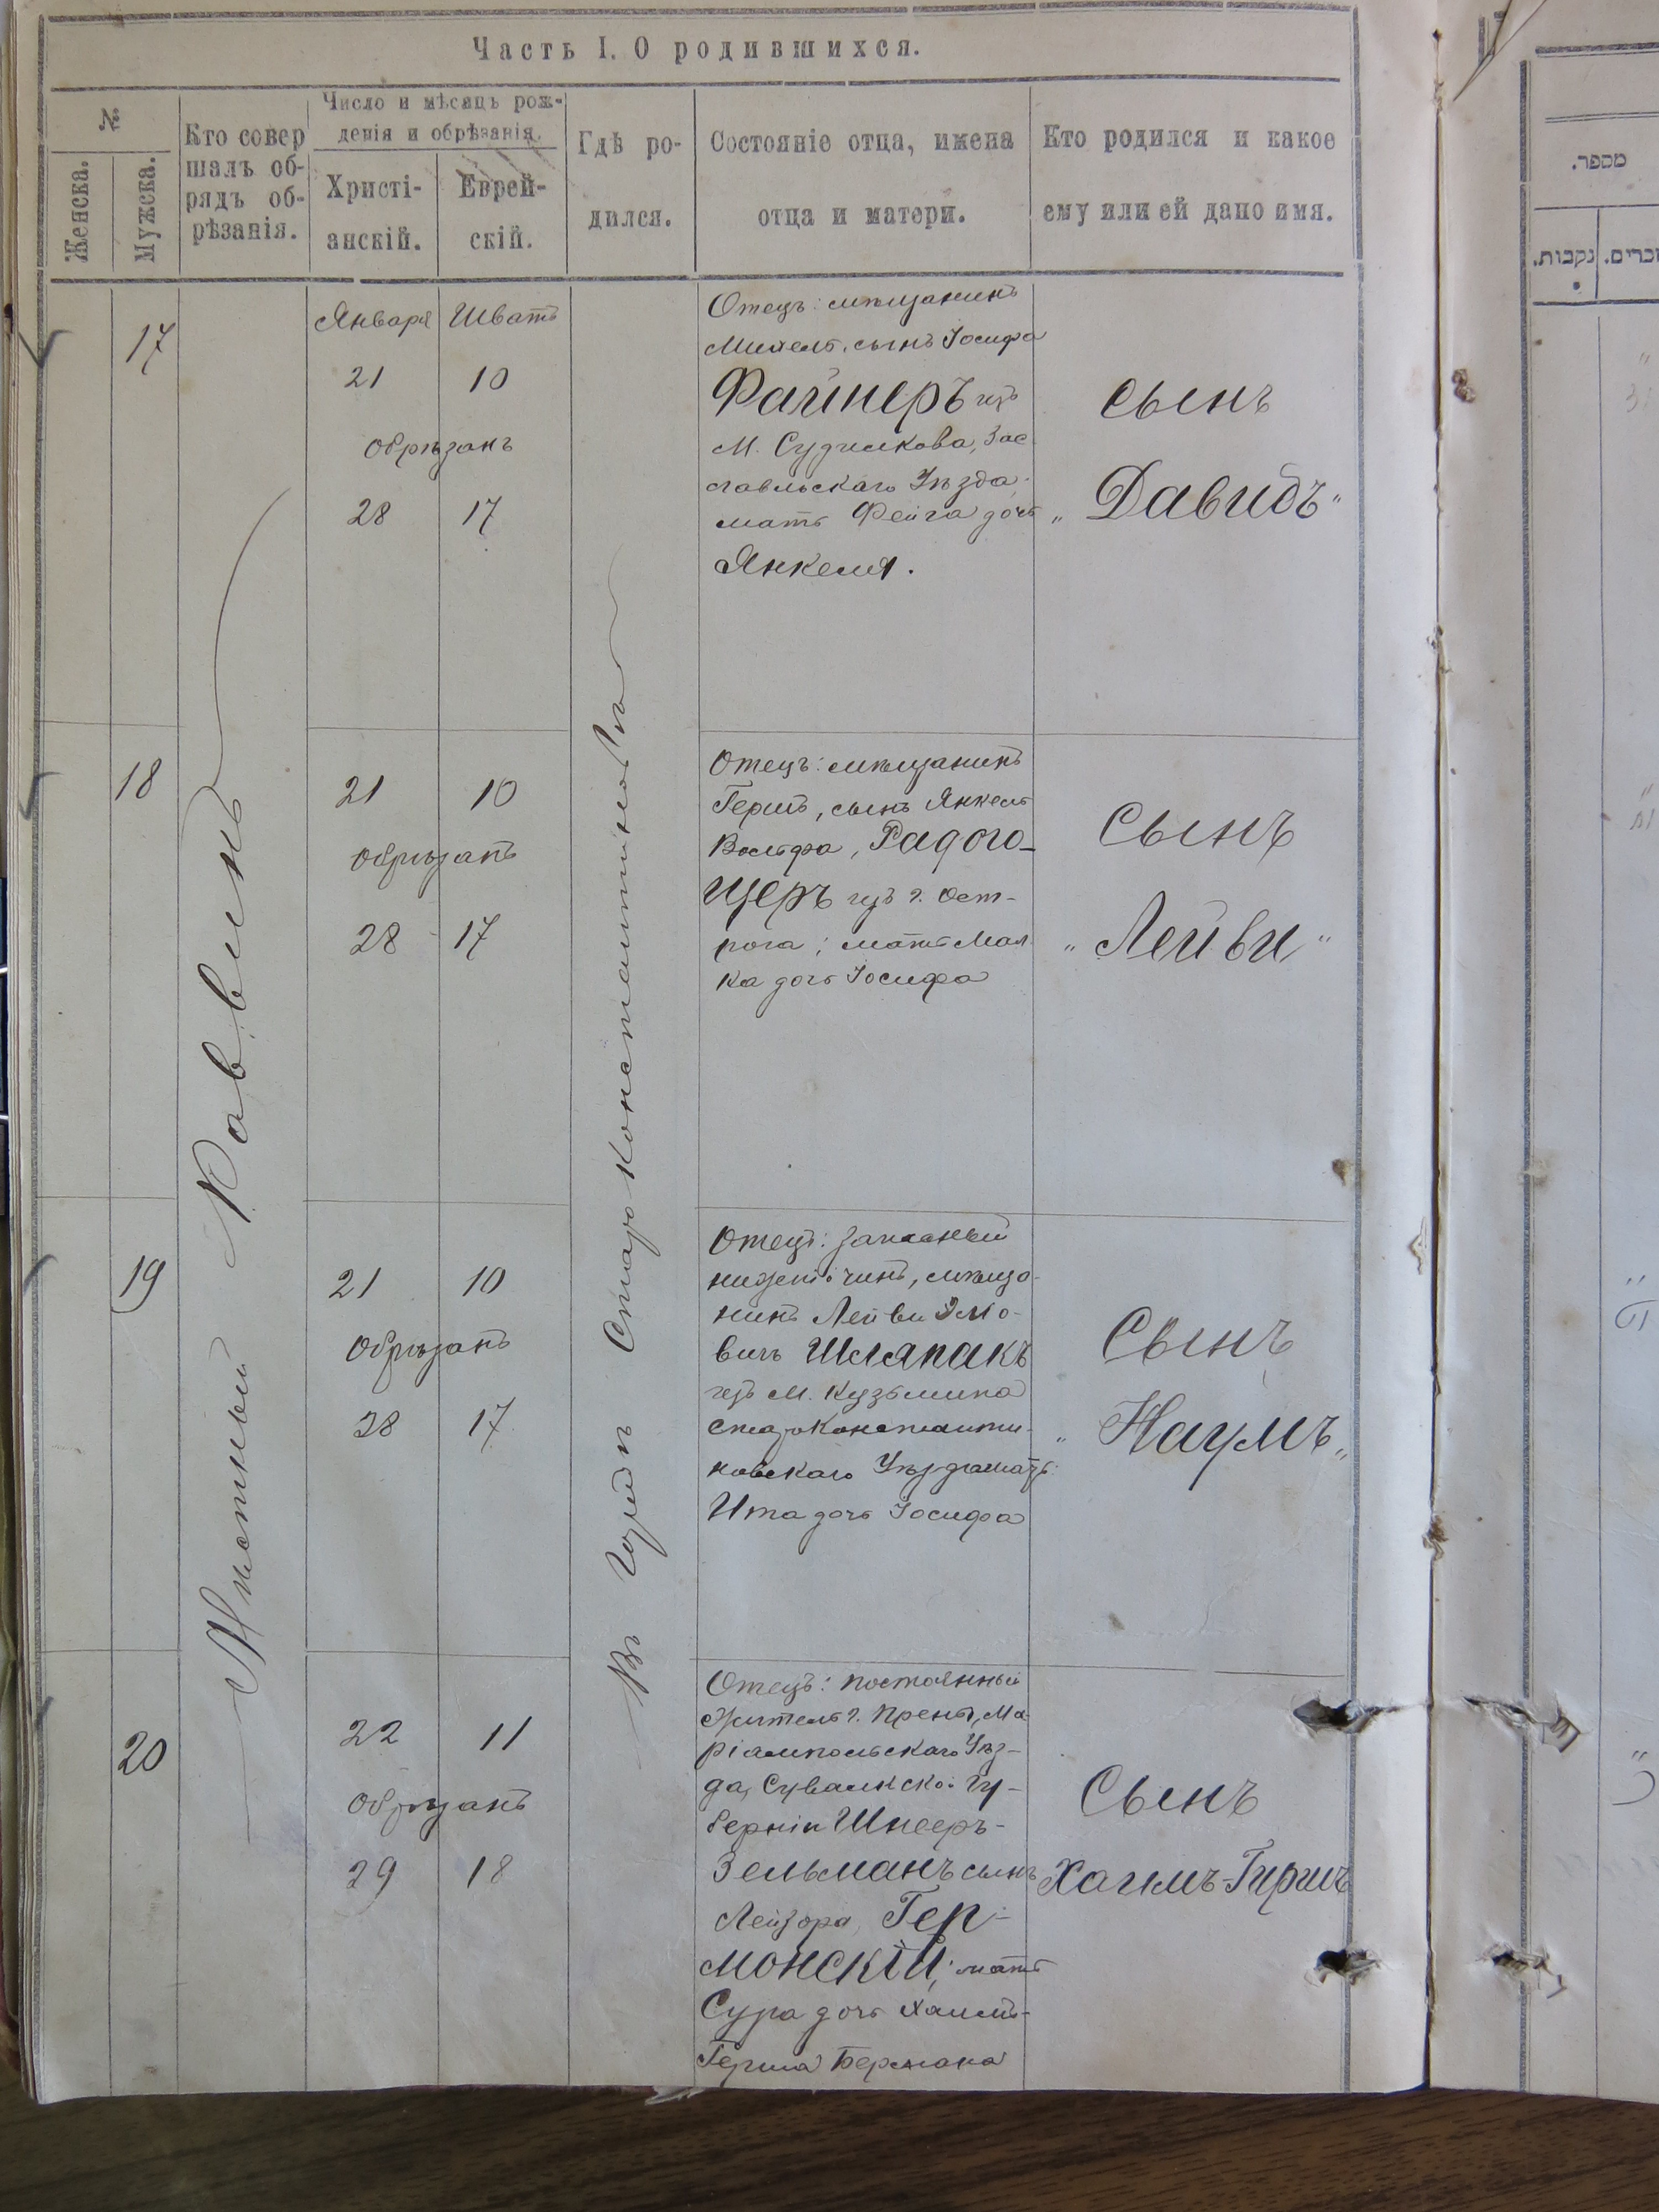 Часть I. О родившихся.
№
Женска.
Мужска.
Кто совер
шалъ об-
рядъ об-
рѣзанія.
Число и мѣсяцъ рож-
денія и обрѣзанія.
Христі-
анскій.
Еврей-
скій.
Гдѣ ро-
дился.
Состояніе отца, имена
отца и матери.
Кто родился и какое
ему или ей дано имя.
Мѣстный Раввинъ
Въ Городѣ Староконстантиновѣ
17
Января Шватъ
21 10
обрѣзанъ
28 17
Отецъ: мѣщанинъ
Михель, сынъ Іосифа
Файнеръ изъ
М. Судилкова, Зас
лавльскаго Уѣзда.
мать Фейга дочь
Янкеля.
сынъ
„ Давидъ "
18
21 10
обрѣзанъ
28 17
Отецъ: мѣщанинъ
Гершъ, сынъ Янкель
Вольфа, Радого-
щеръ изъ г. Ост-
рога; мать Мал
ка дочь Іосифа
Сынъ
„ Лейви "
19
21 10
Обрѣзанъ
28 17
Отецъ: запасный
нижній чинъ, мѣща-
нинъ Лейви
вичъ Шляпакъ
изъ М. Кузьмина
Староконстанти-
новскаго мать
Ита дочь Іосифа
Сынъ
„ Наумъ „
20
22 11
обрѣзанъ
29 18
Отецъ: постоянный
житель г. Прены, Ма-
ріампольскаго Уѣз-
да, Сувалкской Гу-
берніи Шнееръ-
Зельманъ сынъ
Лейзора, Гер-
монскій; мать
Сура дочь Хаимъ-
Герша Бермана
Сынъ
Хаимъ-Гиршъ
מספר.
נקבות.
זכרים.